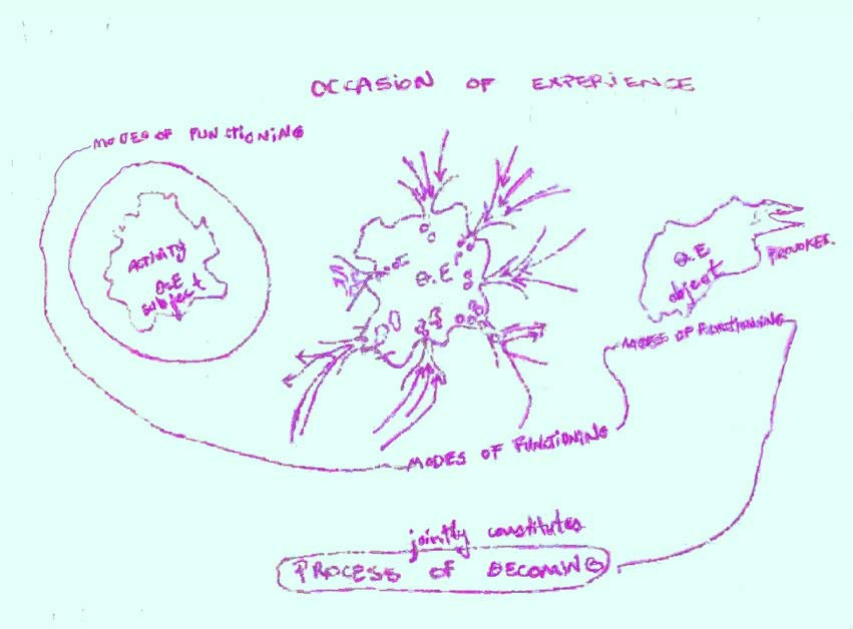 OCCASION OF EXPERIENCE
MODES OF FUNCTIONING
ACTIVITY
O.E
subject
O.E
O.E
object
PROVOKER.
MODES OF FUNCTIONING
MODES OF FUNCTIONING
jointly constitutes
PROCESS OF BECOMING